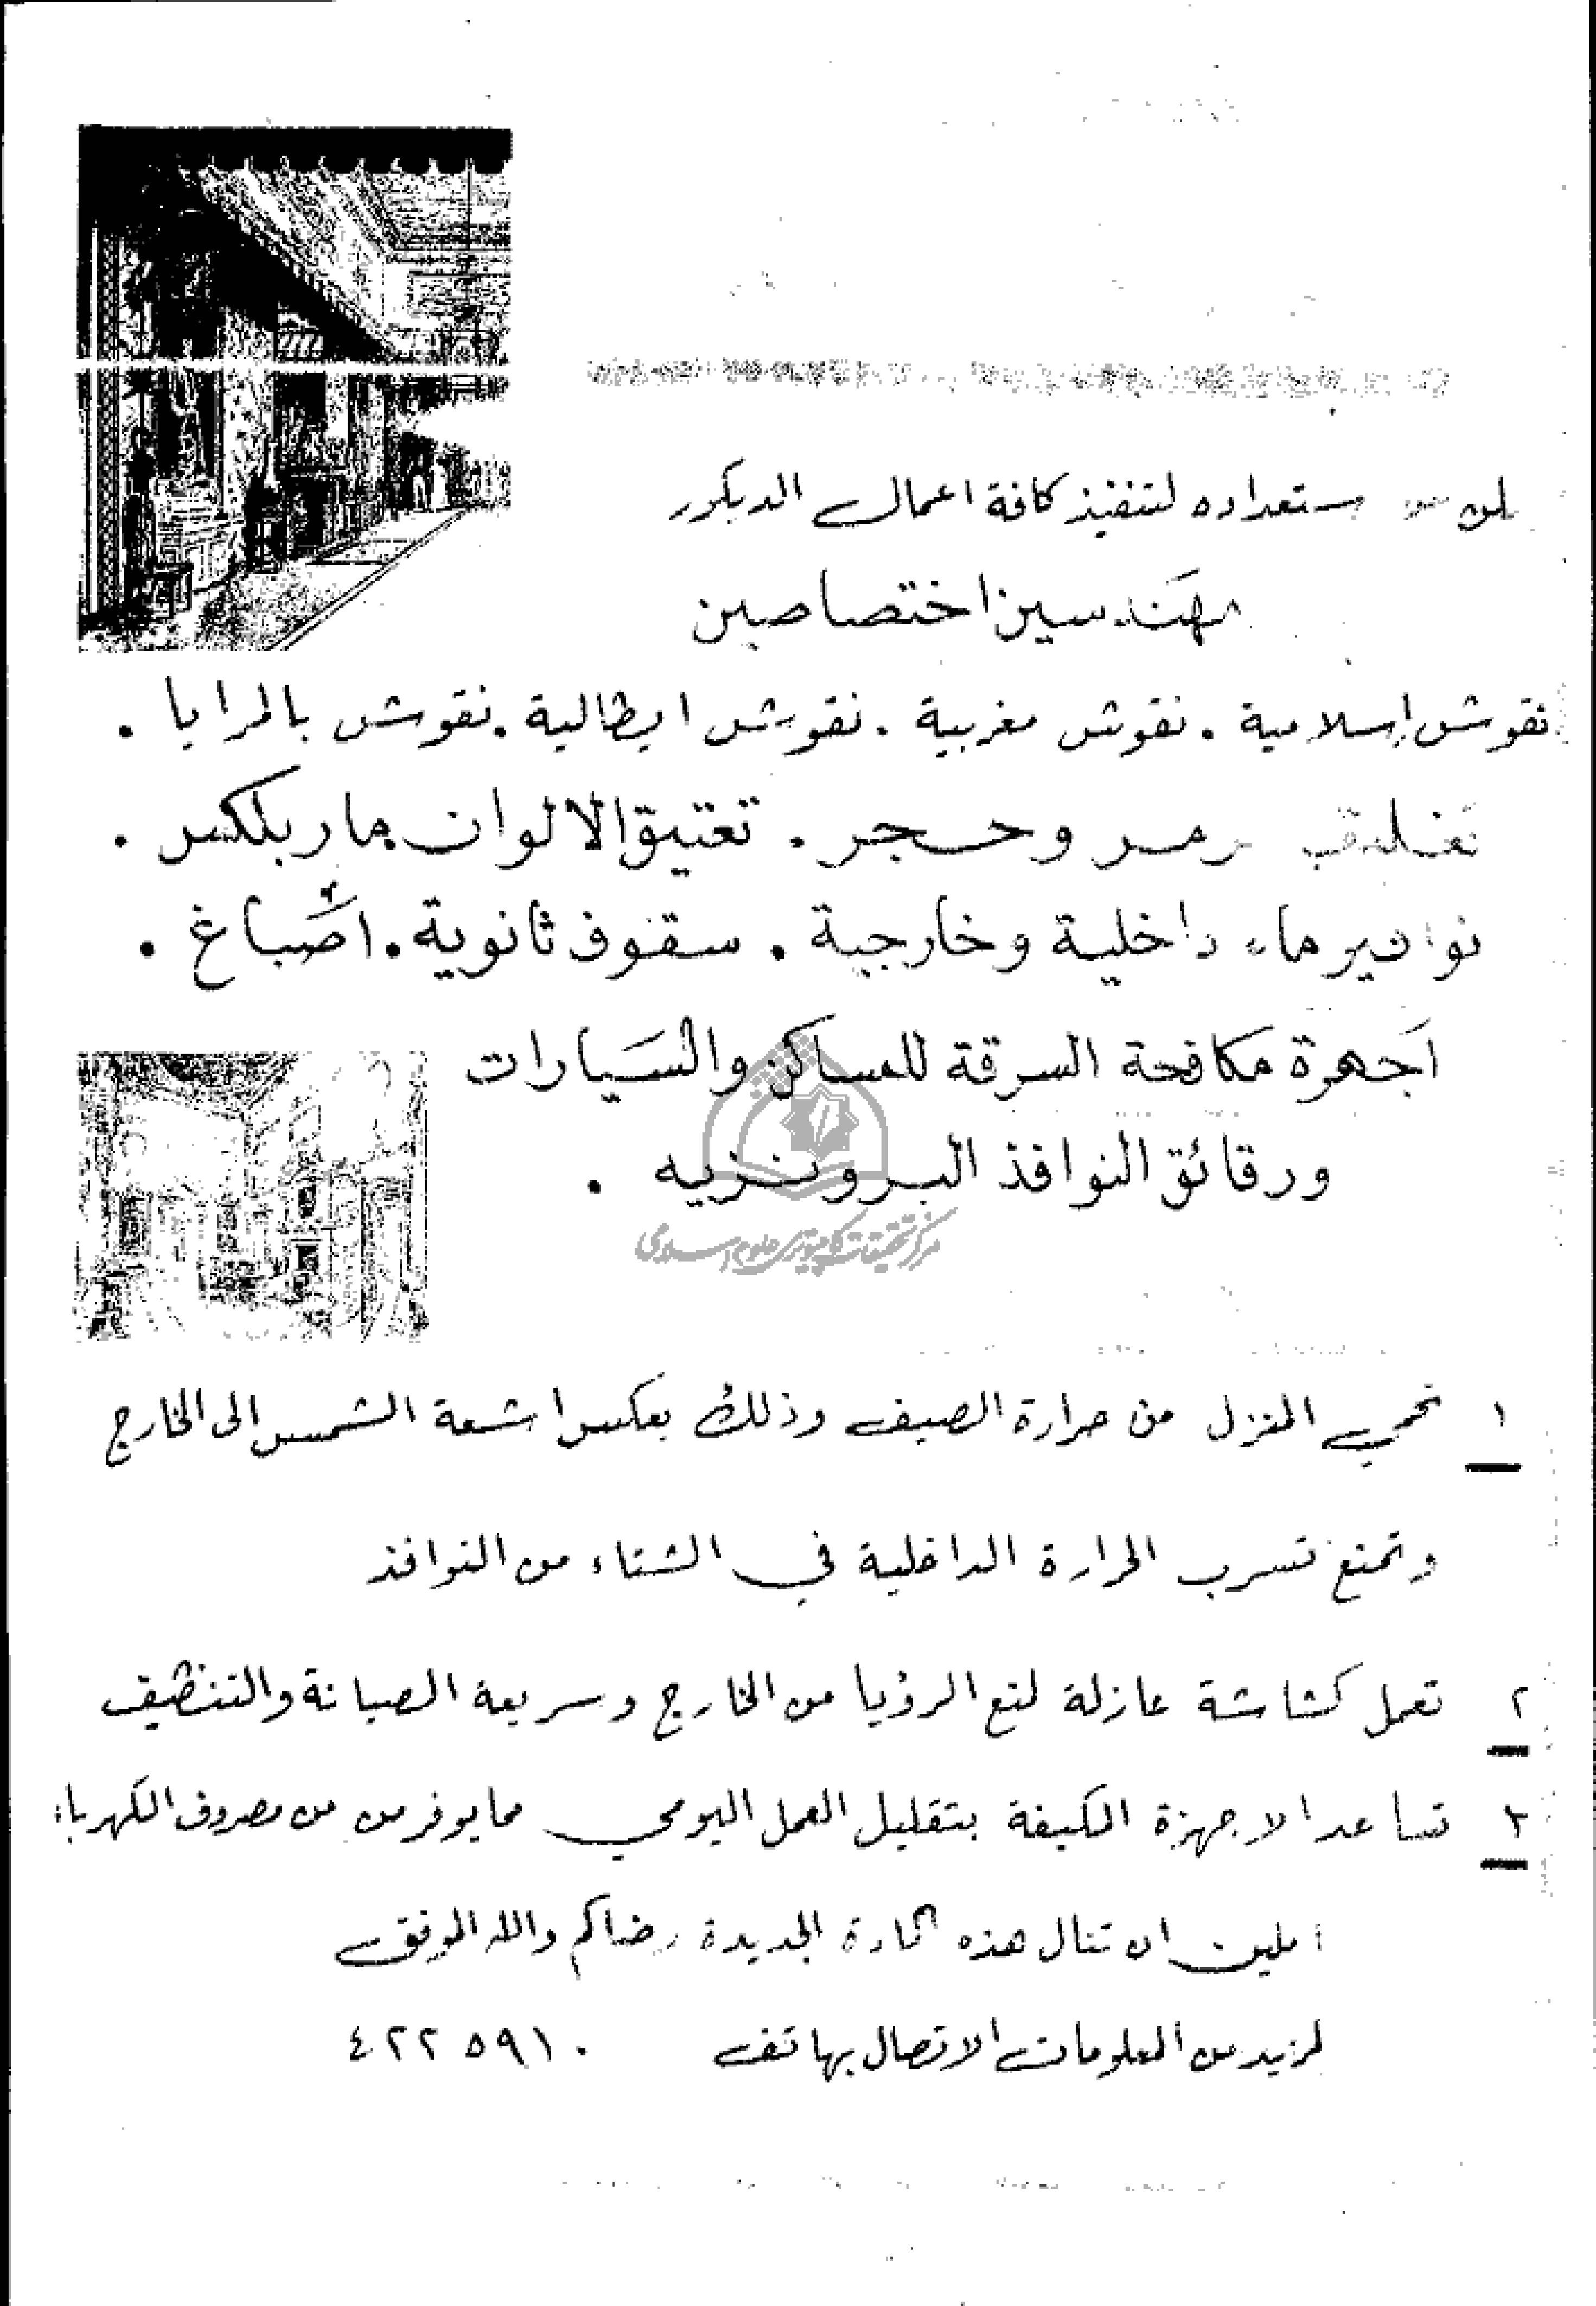 ستعداده لتنفيذ كافة اعمال الديكور
مهندسين اختصاصين
نقوش إسلامية . نقوش مغربية . نقوش ايطالية . نقوش بالمرايا .
وحجر . تعتيق الالوان ماربلكس .
نوافير ماء داخلية وخارجية . سقوف ثانوية . اصباغ .
اجهزة مكافحة السرقة للمساكن والسيارات
ورقائق النوافذ البرونزيه .
مركز تحقیقات کامپیوتری علوم اسلامی
١ تحمي المنزل من حرارة الصيف وذلك بعكس اشعة الشمس الى الخارج
وتمنع تسرب الحرارة الداخلية في الشتاء من النوافذ
٢ تعمل كشاشة عازلة لمنع الرؤيا من الخارج وسريعة الصيانة والتنظيف
٣ تساعد الاجهزة المكيفة بتقليل العمل اليومي مما يوفر من من مصروف الكهرباء
املين ان تنال هذه المادة الجديدة رضاكم والله الموفق
لمزيد من المعلومات الاتصال بهاتف ٤٢٢٥٩١٠